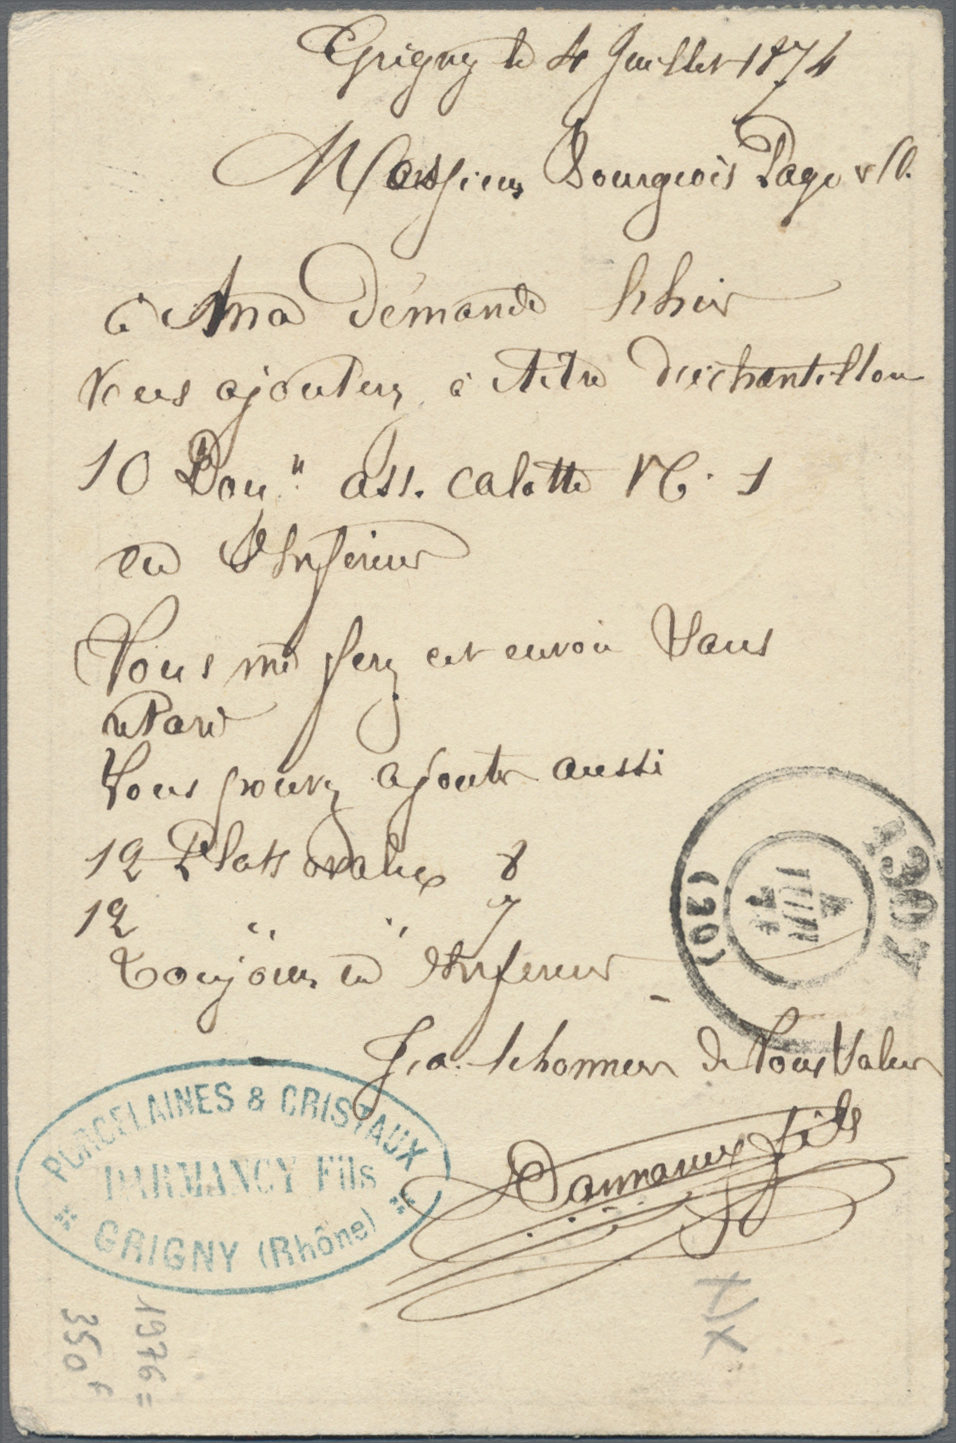 Grigny le 4 Juillet 1874
Monsieur Bourgeois Page & C.
à ma demande d'hier
Vous ajouterez à titre d'échantillon
10 Douz" ass. calotte N. 1
en Inférieur
Vous me ferez cet envoi sans
retard
Vous pouvez ajouter aussi
12 Plats ovales 8
12 " " 7
Toujours en Inférieur
J'ai l'honneur de vous saluer
Darmancy fils
PORCELAINES & CRISTAUX
DARMANCY Fils
GRIGNY (Rhône)
1307
4
JUIL
74
(20)
1976 =
350 f